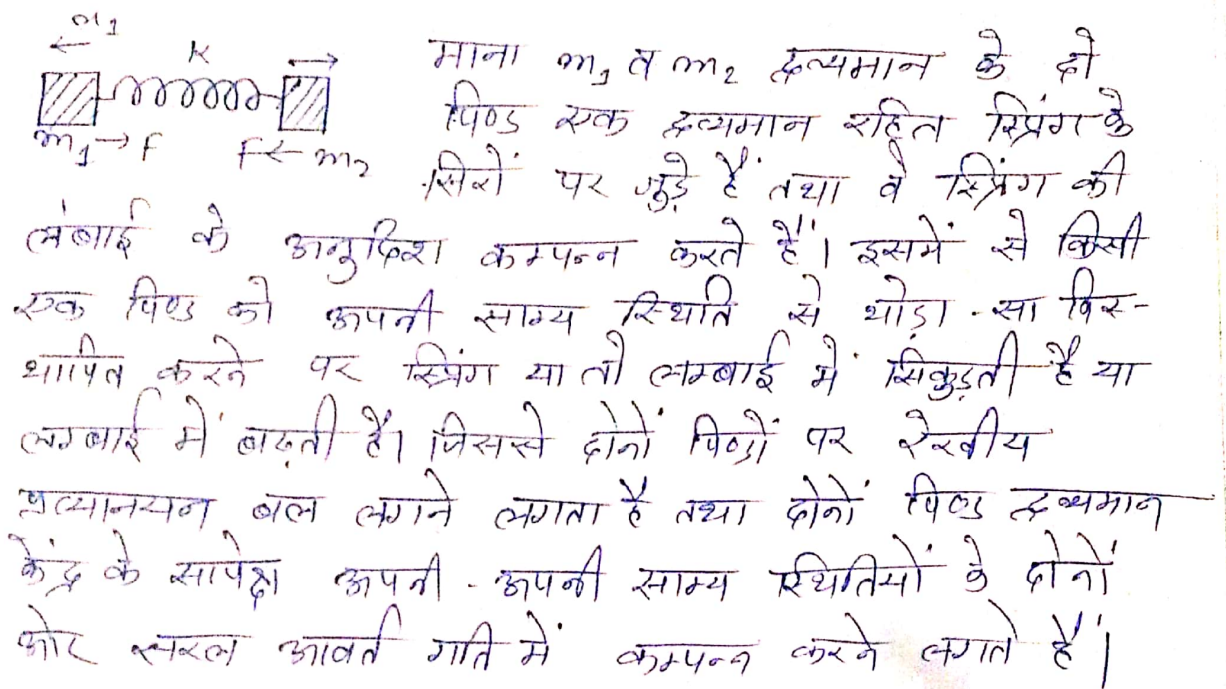 m₁
K
m₁→F F← m₂
माना m₁ व m₂ द्रव्यमान के दो
पिण्ड एक द्रव्यमान रहित स्प्रिंग के
सिरों पर जुड़े हैं तथा वे स्प्रिंग की
लंबाई के अनुदिश कम्पन्न करते हैं। इसमें से किसी
एक पिण्ड को अपनी साम्य स्थिति से थोड़ा-सा विस-
थापित करने पर स्प्रिंग या तो लम्बाई में सिकुड़ती है या
लम्बाई में बढ़ती है। जिससे दोनों पिण्डों पर रेखीय
प्रत्यानयन बल लगने लगता है तथा दोनों पिण्ड द्रव्यमान
केंद्र के सापेक्ष अपनी-अपनी साम्य स्थितियों के दोनों
ओर सरल आवर्त गति में कम्पन्न करने लगते हैं।